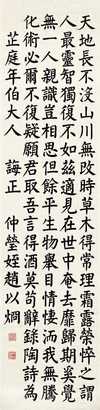 天地長不沒山川無改時草木得常理霜露榮悴之謂
人最靈智獨復不如茲適見在世中奄去靡歸期奚覺
無一人親識豈相思但餘平生物舉目情悽洏我無騰
化術必爾不復疑願君取吾言得酒莫苟辭錄陶詩為
芷庭年伯大人 誨正 仲瑩姪趙以炯